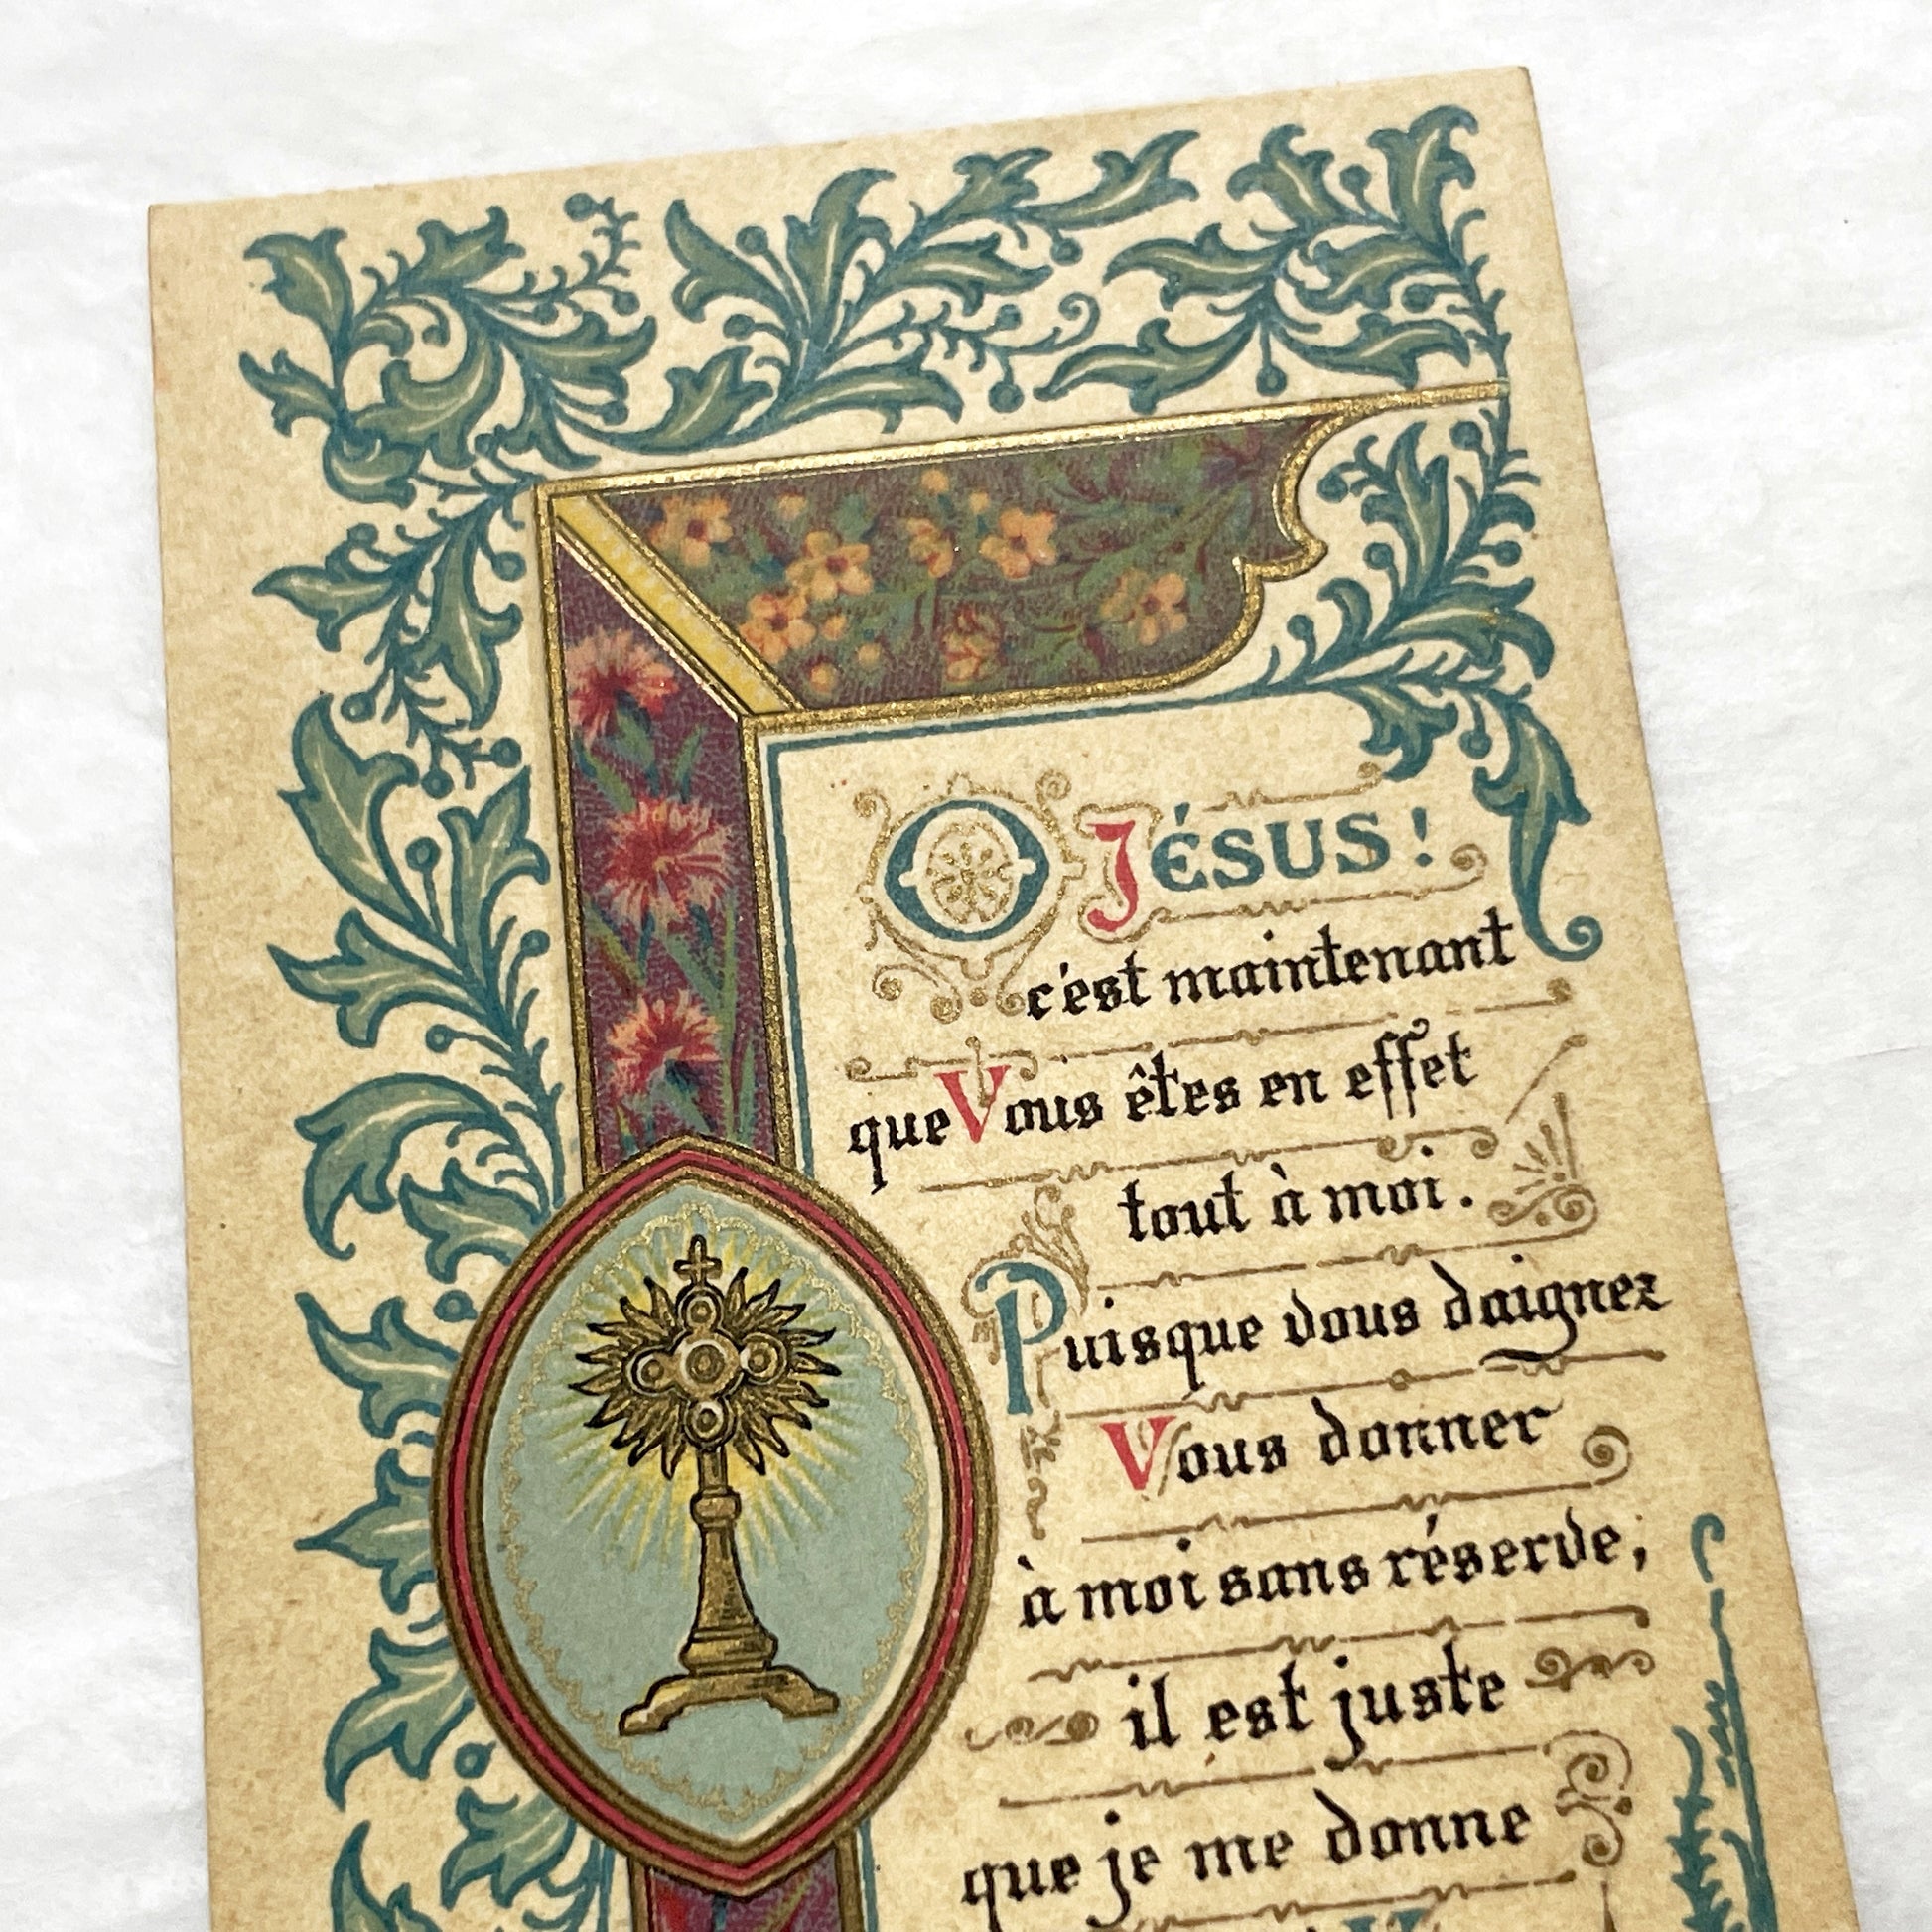 O JÉSUS!
c'est maintenant
que Vous êtes en effet
tout à moi.
Puisque vous daignez
Vous donner
à moi sans réserve,
il est juste
que je me donne